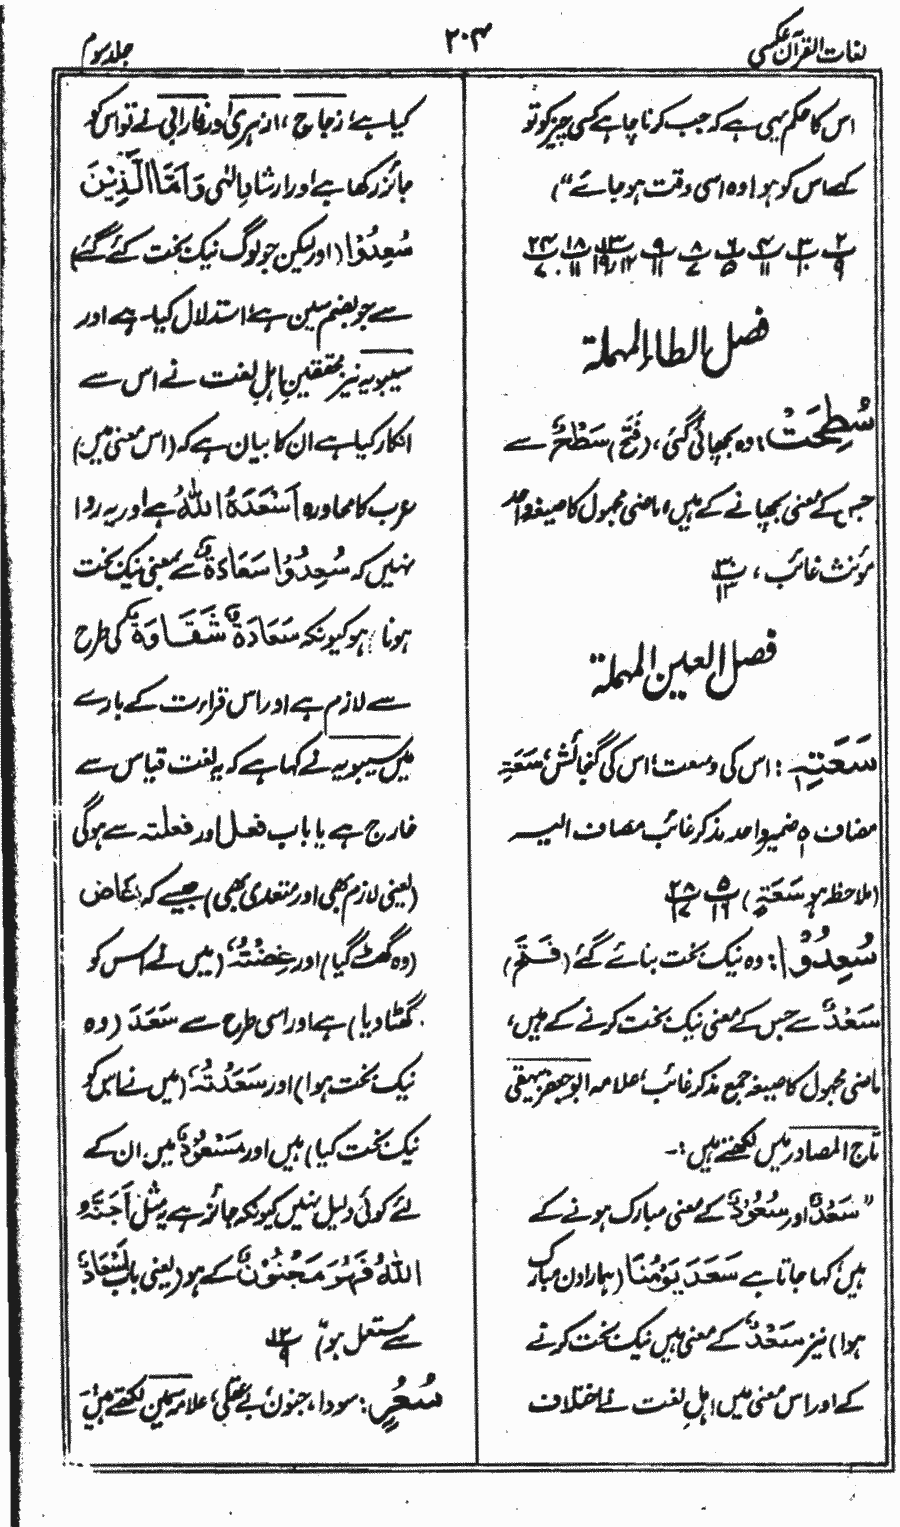 لغات القرآن عکسی
۲۰۴
جلد سوم
اس کا حکم یہی ہے کہ جب کرنا چاہے کسی چیز کو تو
کہ اس کو ہوا وہ اسی وقت ہو جائے“)
فصل الطاء المهملة
سُطِحَتْ: وہ بچھائی گئی، (فَتَحَ) سَطْحٌ سے
جس کے معنی بچھانے کے ہیں، ماضی مجہول کا صیغہ واحد
مؤنث غائب، پ۳۰/۱۳
فصل العين المهملة
سَعَتِہٖ: اس کی وسعت، اس کی گنجائش، سَعَةِ
مضاف ہ ضمیر واحد مذکر غائب مضاف الیہ
(ملاحظہ ہو سَعَةٍ) پ۵/۱۶ پ۲۸/۱۷
سُعِدُوْا: وہ نیک بخت بنائے گئے (فَتَحَ)
سَعْدٌ سے جس کے معنی نیک بخت کرنے کے ہیں،
ماضی مجہول کا صیغہ جمع مذکر غائب، علامہ ابو جعفر بیہقی
تاج المصادر میں لکھتے ہیں:۔
”سَعْدٌ اور سُعُوْدٌ کے معنی مبارک ہونے کے
ہیں، کہا جاتا ہے سَعَدَ یَوْمُنَا (ہمارا دن مبارک
ہوا) نیز سَعْدٌ کے معنی ہیں نیک بخت کرنے
کے اور اس معنی میں اہلِ لغت نے اختلاف
کیا ہے، زجاج، ازہری اور فارابی نے تو اس کو
جائز رکھا ہے اور ارشادِ الٰہی وَاَمَّا الَّذِیْنَ
سُعِدُوْا (اور لیکن جو لوگ نیک بخت کئے گئے)
سے جو بضم سین ہے، استدلال کیا ہے اور
سیبویہ نیز محققینِ اہلِ لغت نے اس سے
انکار کیا ہے ان کا بیان ہے کہ (اس معنی میں)
عرب کا محاورہ اَسْعَدَہُ اللّٰہُ ہے اور یہ روا
نہیں کہ سُعِدُوْا سَعَادَةٌ سے بمعنی نیک بخت
ہونا، ہو کیونکہ سَعَادَةٌ شَقَاوَةٌ کی طرح
سے لازم ہے اور اس قراءت کے بارے
میں سیبویہ نے کہا ہے کہ یہ لغت قیاس سے
خارج ہے یا باب فعل اور فعلتہ سے ہوگی
(یعنی لازم بھی اور متعدی بھی) جیسے کہ غَاضَ
(وہ گھٹے گیا) اور غِضْتُہٗ (میں نے اس کو
گھٹا دیا) ہے اور اسی طرح سے سَعَدَ (وہ
نیک بخت ہوا) اور سَعَدْتُہٗ (میں نے اس کو
نیک بخت کیا) ہیں اور مَسْعُوْدٌ میں ان کے
لئے کوئی دلیل نہیں کیونکہ جائز ہے یہ مثل اَجَنَّہُ
اللّٰہُ فَہُوَ مَجْنُوْنٌ کے ہو (یعنی باب اِسْعَادٌ
سے مستعمل ہو) پ۱۲/۹
سُعُرٍ: سودا، جنون، بے عقلی، علامہ سمین لکھتے ہیں،